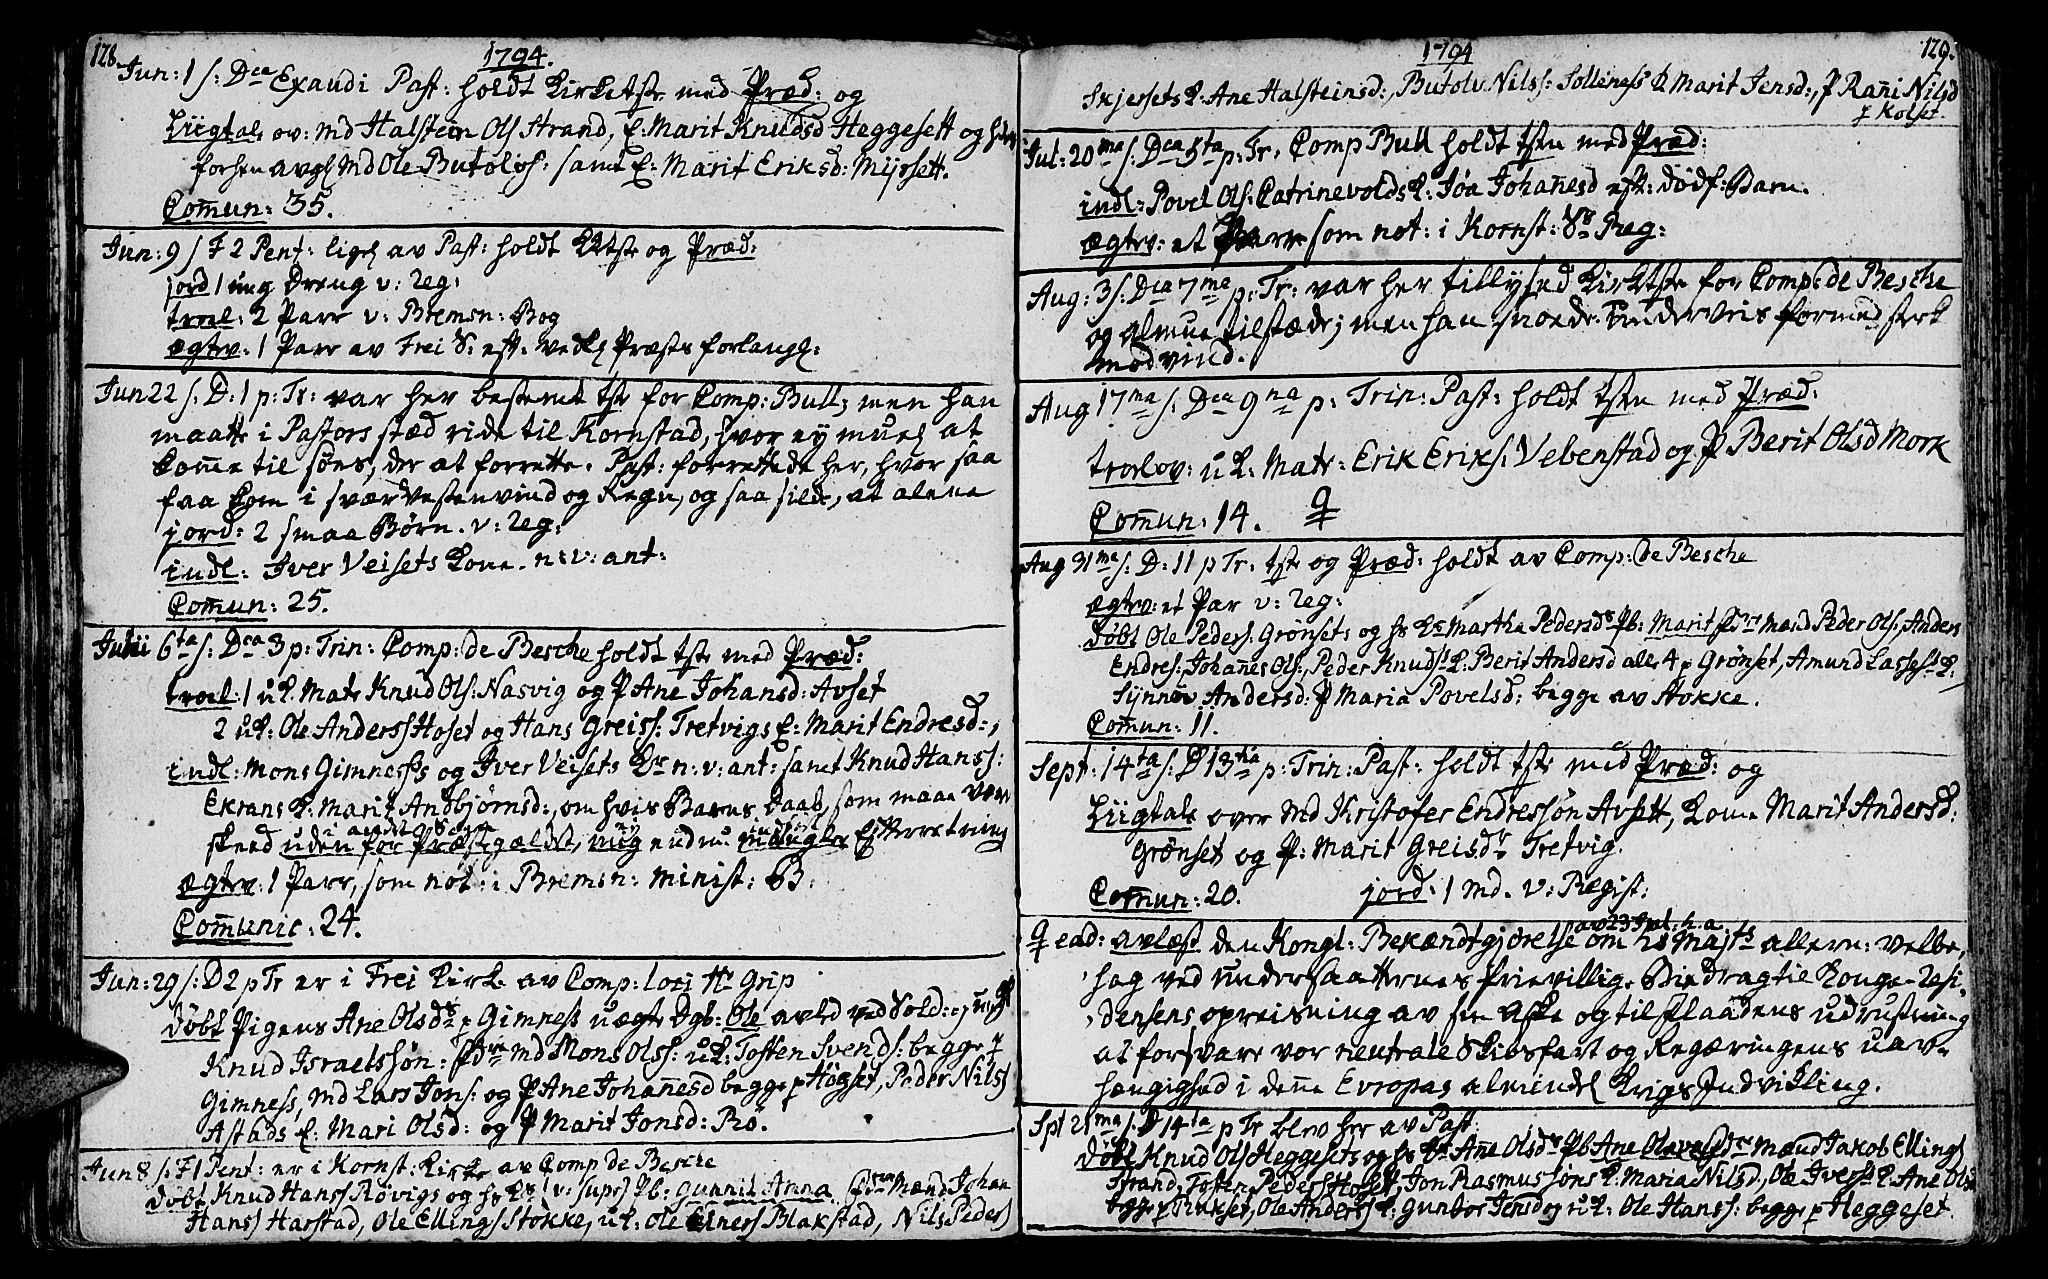 128.
1794.
Jun: 1 s: Dca Exaudi Past: holdt Kirketste med Præd: og
Liigtale ov: md Halstein Ols Strand, E: Marit Knuldsd Heggesett og
forhen avgl md Ole Butolvs: samt E: Marit Eriksd: Myrsett.
Comun: 35.
Jun: 9 s F 2 Pent: ligel av Past: holdt tste og Præd:
jord 1 ung Dreng v: Reg:
trol: 2 Parr v: Bremsn: Bog
ægtev: 1 Parr av Frei S: eft: vedk Præsts forlangl:
Jun 22 s: D: 1 p: Tr: var her bestemt tste for Comp: Bull; men han
maatte i Pastors stæd ride til Kornstad, hvor ey mueligt at
komme til søes, der at forrette. Past: forrettede her, hvor saa
faa kom i svær vestenvind og Regn, og saa silde, at alene
jord: 2 smaa Børn. v: Reg:
indl: Iver Veisets Kone. n: v: ant:
Comun: 25.
Julii 6ta s: Dca 3 p: Trin: Comp: de Besche holdt tste med Præd:
trol: 1 uK: Matr Knud Ols: Nasvig og P Ane Johansd: Avset
2 uK: Ole Anderss Hoset og Hans Greiss: Tretvigs E: Marit Endresd:,
indl: Mons Gimness's og Iver Veisets Kr n: v: ant: samt Knud Hanss:
Ekrans K: Marit Andbjørnsd:, om hvis Barns Daab, som maa være
skeed uden for Præstegældet, mig endnu mangler Efterretning
ægtev: 1 Parr, som not: i Bremsn: minist: B:
Comunic: 24.
Jun: 29 s: D 2 p Tr er i Frei Kirke av Comp: loci Hr Grip
døbt Pigens Ane Olsdr p Gimness uægte Dgb: Ole avled ved Sold: og ungk
Knud Israelssøn: Fdre md Mons Olss: uK: Tosten Svends: begge p
Gimness, md Lars Jons: og P Ane Johannesd begge p Høgset, Peder Nilss
Astads E: Mari Olsd: og P Marit Jonsd: Rø.
Jun 8 s: F 1 Pent: er i Kornst: Kirke av Comp de Besche
døbt Knud Hanss Røvigs og hs Ks (v: supr) Pb: Gunnil Anna Fdre Mænd Johan
Hanss Harstad, Ole Ellings Stokke, uK: Ole Elness Blakstad, Nils Peders
1794
129.
Skjersets K: Ane Halsteinsd:, Butolv Nilss: Solleness K Marit Jensd:, P Rani Nilsd
p Kolset.
Jul: 20ma s: Dca 5ta p: Tr, Comp Bull holdt tsten med Præd:
indl: Povel Ols: Catrinevolds K: Joa Johannesd eft: dødf: Barn.
ægtev: et Parr som not: i Kornst: Ss Reg:
Aug: 3 s: Dca 7ma p: Tr: var her tillyset Kirketste for Comp: de Besche
og almue tilstæde; men han snoede underveis formed sterk
modvind.
Aug 17ma s: Dca 9na p: Trin: Past: holdt tsten med Præd:
trolov: uK: Matr: Erik Eriks: Vebenstad og P Berit Olsd Mork
Comun: 14.
Aug 31ma s: D: 11 p Tr: tste og Præd: holdt av Comp: de Besche
ægtev: et Par v: Reg:
døbt Ole Peders: Grønsets og hs Ks Martha Pedersdr Pb: Marit Fdre Mænd Peder Ols:, Anders
Endres: Johannes Ols:, Peder Knuds: K: Berit Andersd alle 4 p Grønset, Amund Lasses: K:
Synnøv Andersd: P Maria Povelsd: begge av Stokke.
Comun: 11.
Sept: 14ta s: D 13tia p: Trin: Past: holdt tste med Præd: og
Liigtale over md Kristofer Endressøn Avsett, Kone Marit Andersd:
Grønset og P: Marit Greisdr Tretvig.
Comun: 20. jord: 1 md. v: Regist:
ead: avlæst den Kongl: Bekændtgjørelse av 23 Jul: h: a: om hs Majts allern: velbe,
hag ved undersaatternes frievillige Bidrag til Konge-Resi,
densens opreisning av sin Aske og til Flaadens udrustning
at forsvare vor neutrale Skibsfart og Regæringens uav-
hængighed i denne Evropas almindel Krigs Indvikling.
Spt 21ma s: D 14ta p Tr blev her av Past:
døbt Knud Ols Heggesets og hs Ks Ane Olsdr Pb Ane Olave Fdre Mænd Jakob Ellings
Strand, Tosten Peders Hoset, Jon Rasmussøns K: Maria Nilsd, Ole Iverss K Ane Ols
begge p Rokset, Ole Anders K: Gunhor Jensd og uK: Ole Hanss: begge p Heggeset.